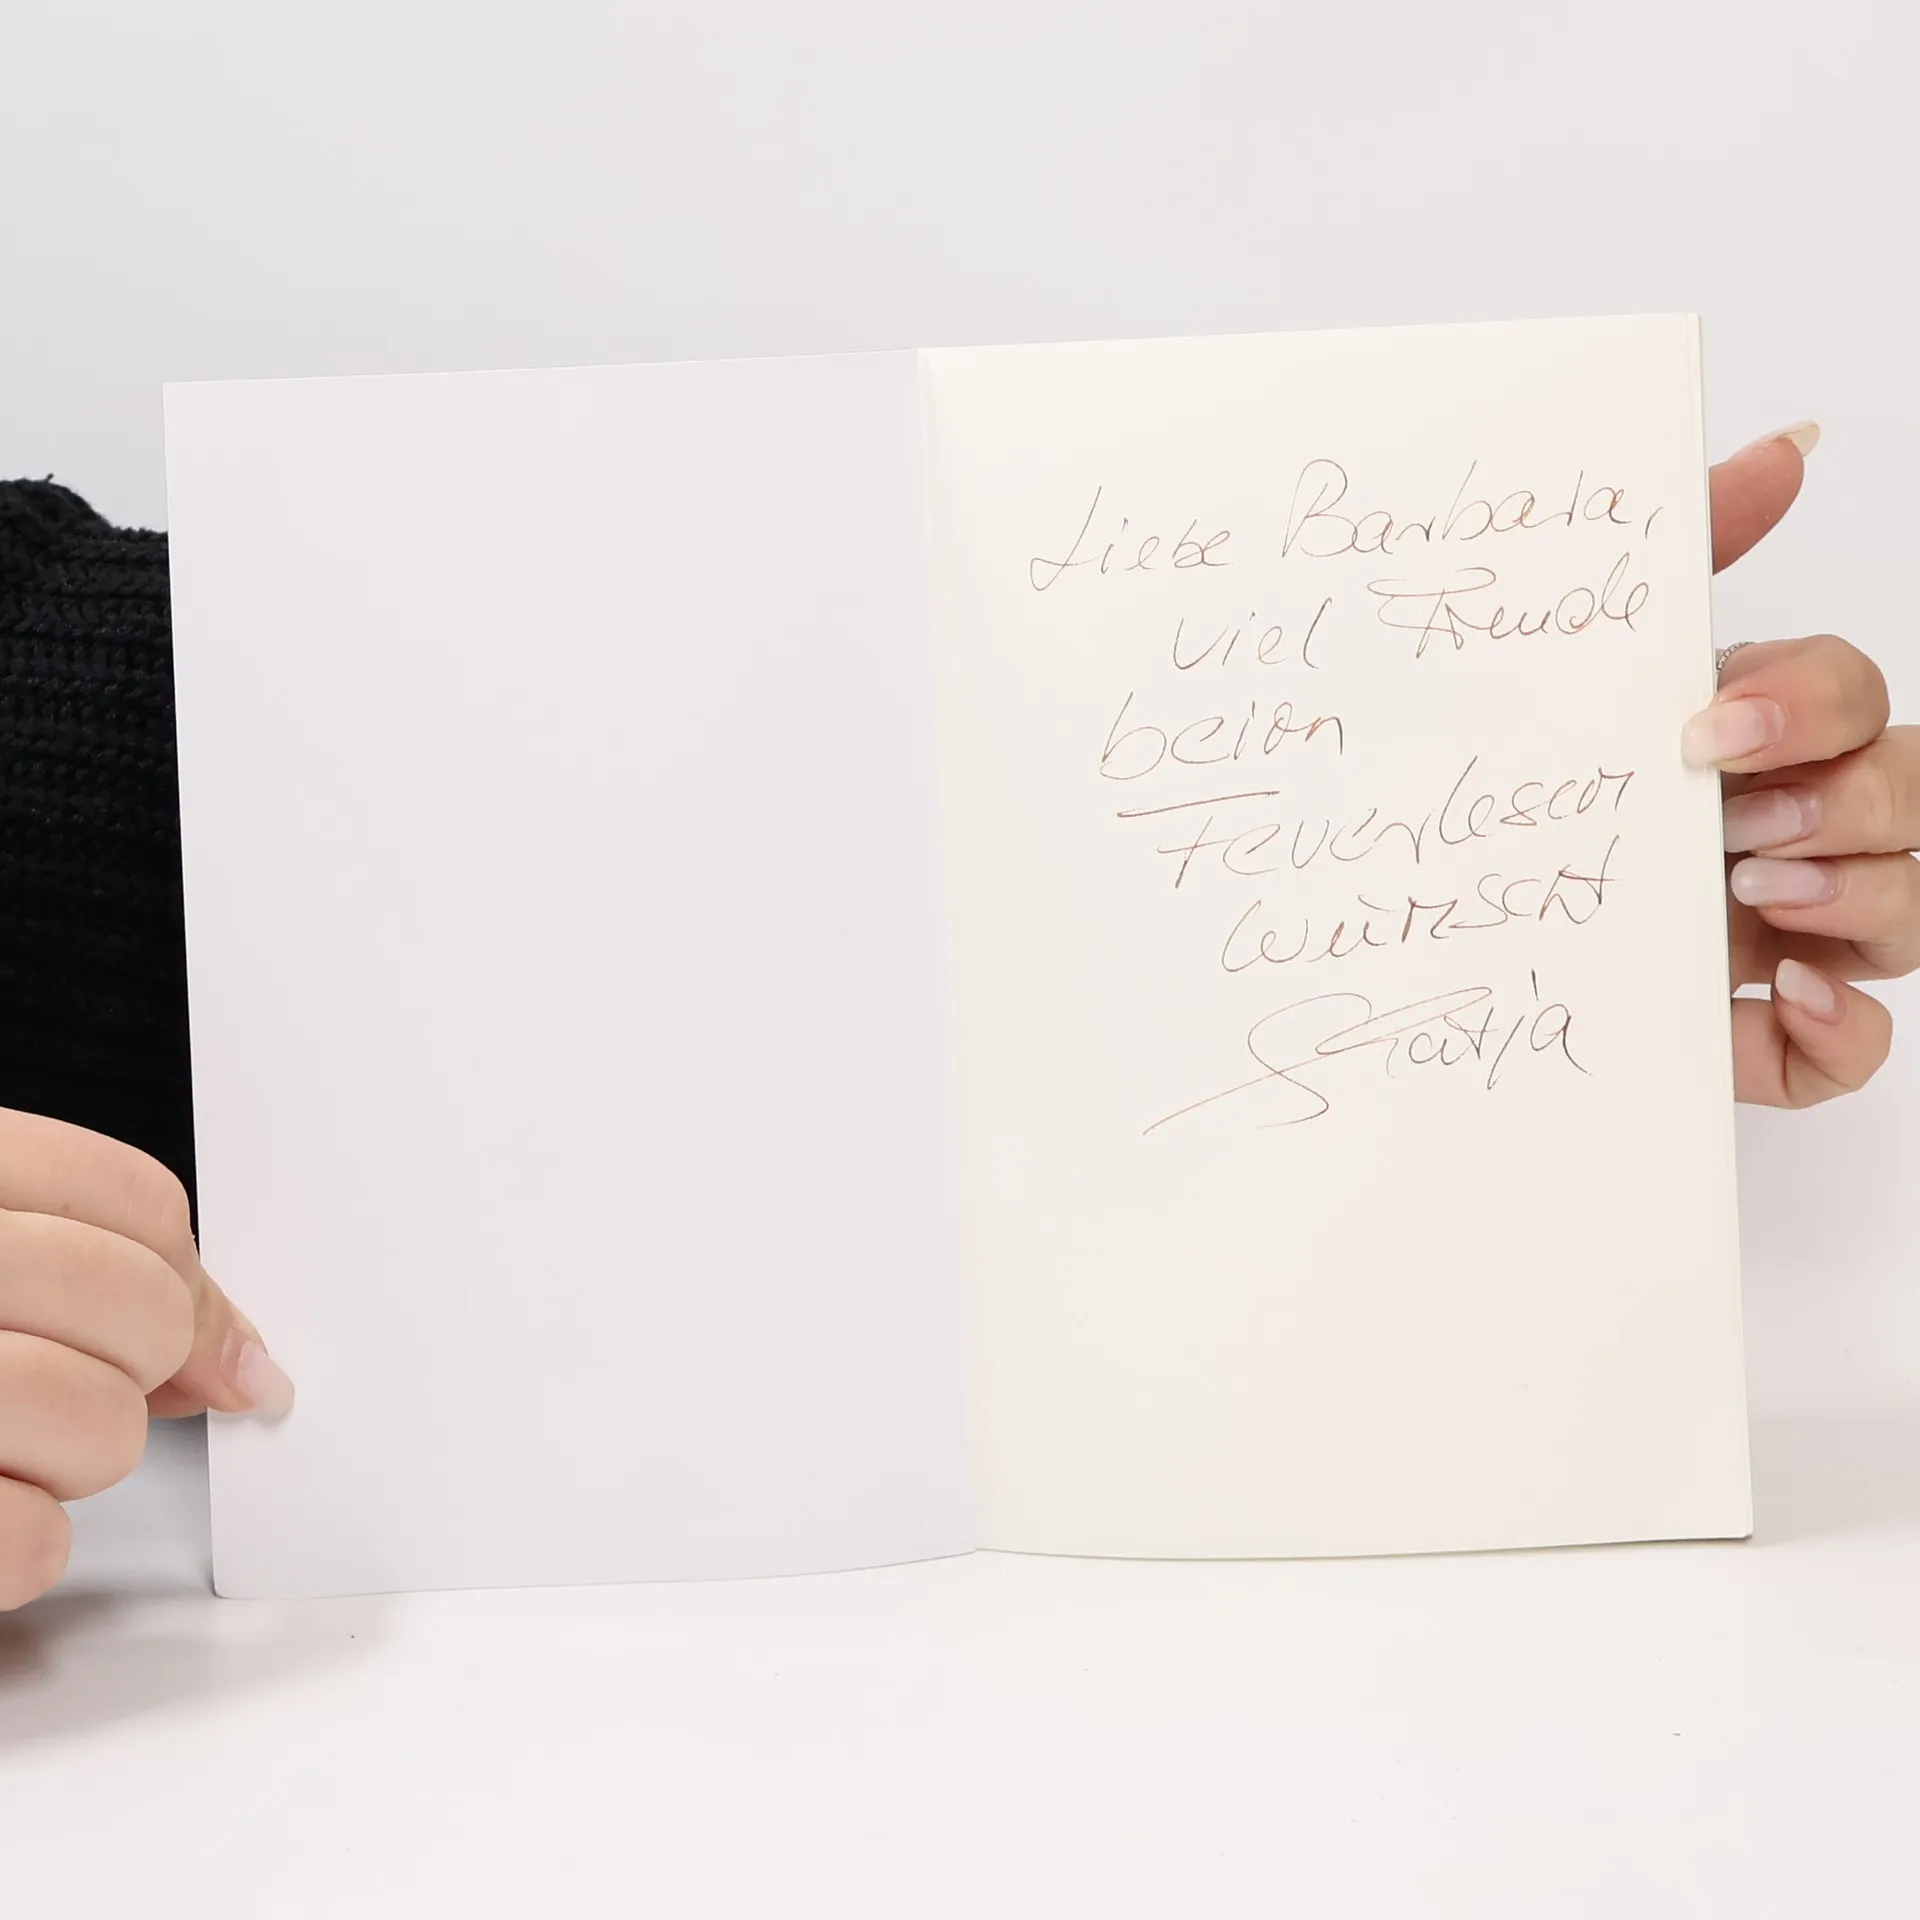 Liebe Barbara,
viel Freude
beim
Feuerlesen
wünscht
Katja